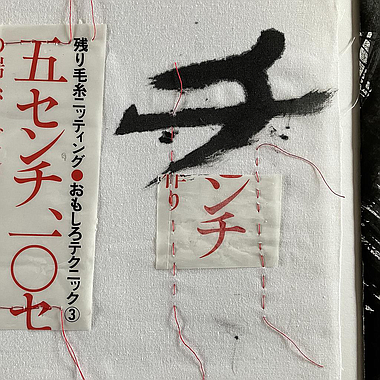 チ
ンチ
り
残り毛糸ニッティング●おもしろテクニック③
五センチ、一〇セ